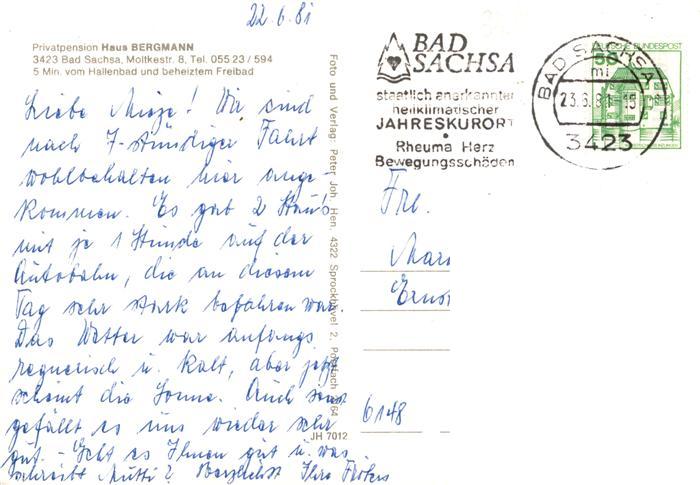 22.6.81
Privatpension Haus BERGMANN
3423 Bad Sachsa, Moltkestr. 8, Tel. 055 23 / 594
5 Min. vom Hallenbad und beheiztem Freibad
Liebe Mieze! Wir sind
nach 7-stündiger Fahrt
wohlbehalten hier ange-
kommen. Es gab 2 Stau's
mit je 1 Stunde auf der
Autobahn, die an diesem
Tag sehr stark befahren war.
Das Wetter war anfangs
regnerisch u. kalt, aber jetzt
scheint die Sonne. Auch sonst
gefällt es uns wieder sehr
gut. - Geht es Ihnen gut u. was
schreibt Mutti? Herzlichst Ihre
Foto und Verlag: Peter Joh. Hen. 4322 Sprockhövel 2, Postfach
JH 7012
BAD
SACHSA
staatlich anerkannter
heilklimatischer
JAHRESKURORT
Rheuma Herz
Bewegungsschäden
BAD SACHSA
23.6.81 - 15
3423
DEUTSCHE BUNDESPOST
50
Frl.
6148